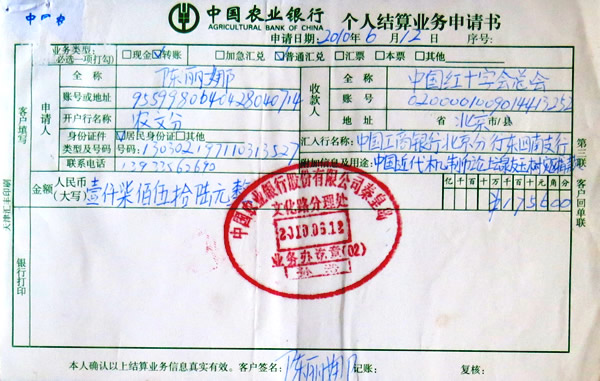 中国农业银行
AGRICULTURAL BANK OF CHINA
个人结算业务申请书
申请日期:2010年6月12日 序号:
业务类型: 必选一项打勾
□现金 ☑转账 □加急汇兑 ☑普通汇兑 □汇票 □本票 □其他
客户填写
申请人
全称 陈丽娜
账号或地址
开户行名称 农文分
身份证件 ☑居民身份证 □其他
类型及号码 号码:130302197110313527
联系电话
收款人
全称 中国红十字会总会
账号 0200001009014413252
省 北京市/县
汇入行名称: 中国工商银行北京分行东四南支行
附加信息及用途:
金额 人民币 (大写) 壹仟柒佰伍拾陆元整
亿千百十万千百十元角分
¥175600
第三联 客户回单联
天津汇丰印刷
银行打印
中国农业银行股份有限公司秦皇岛
文化路分理处
2010.06.12
业务办讫章(02)
本人确认以上结算业务信息真实有效。 客户签名: 陈丽娜 记账: 复核: